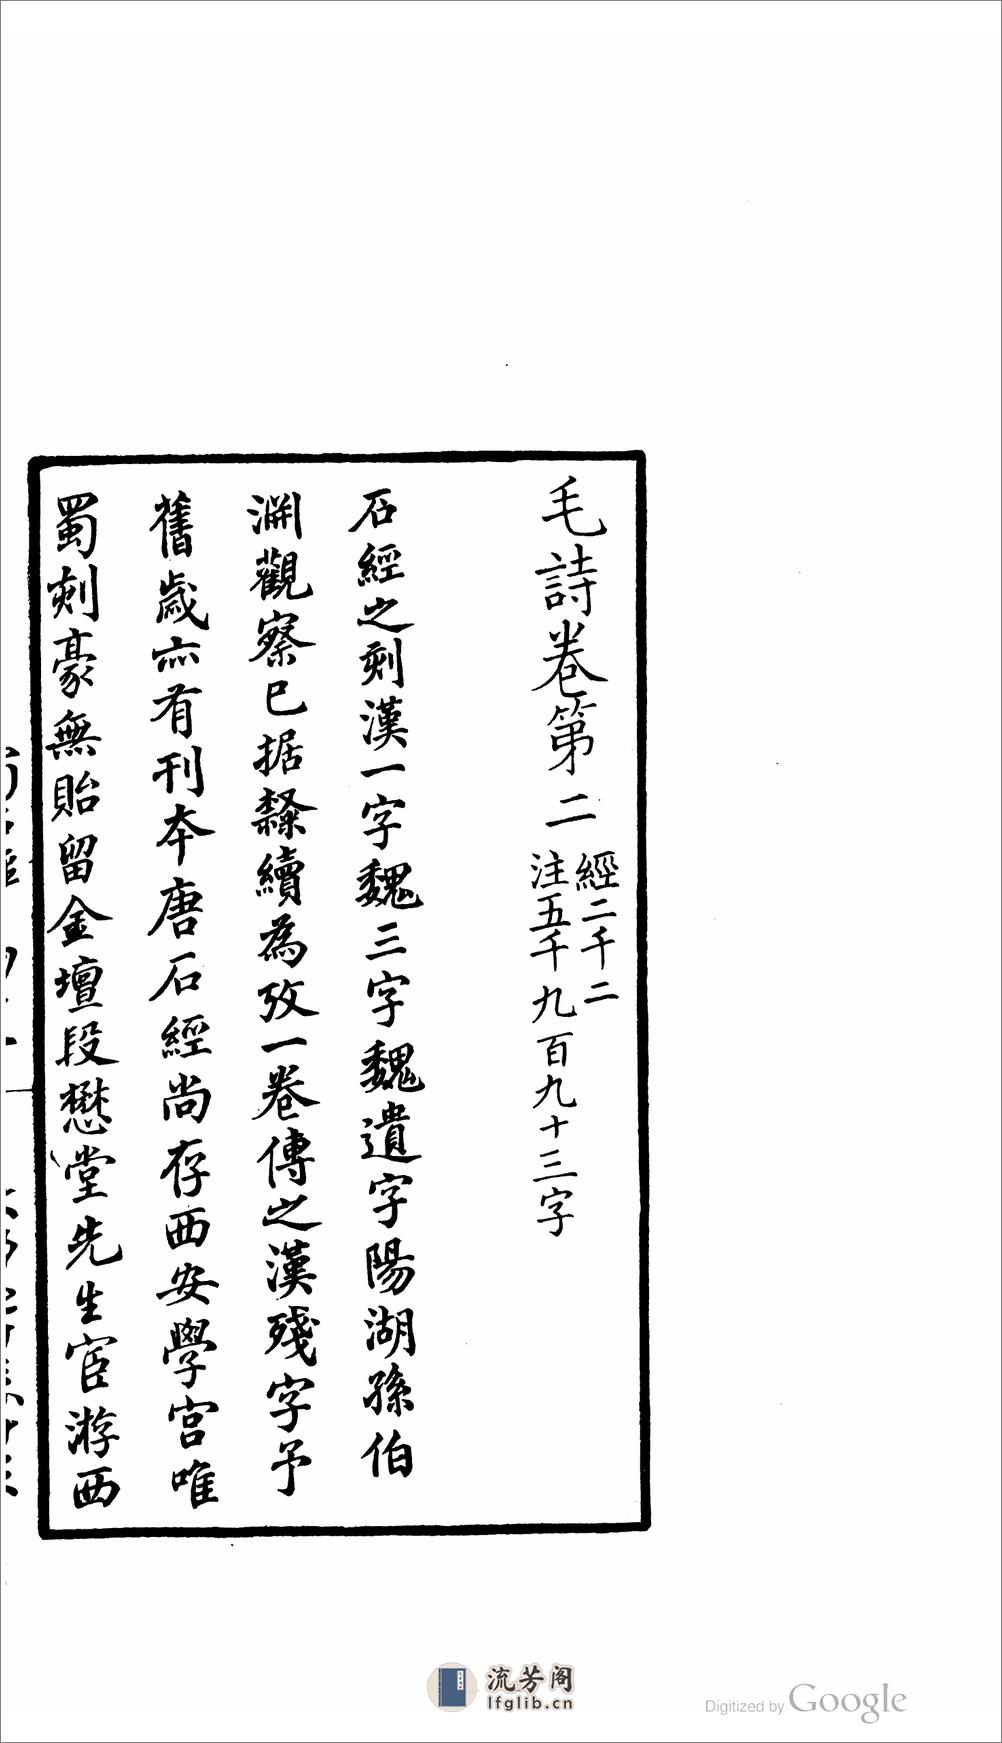 毛詩卷第二
經二千二
注五千九百九十三字
石經之刻漢一字魏三字魏遺字陽湖孫伯
淵觀察已据隸續為攷一卷傳之漢殘字予
舊歲亦有刊本唐石經尚存西安學宮唯
蜀刻豪無貽留金壇段懋堂先生宦游西
流芳阁
lfglib.cn
Digitized by Google